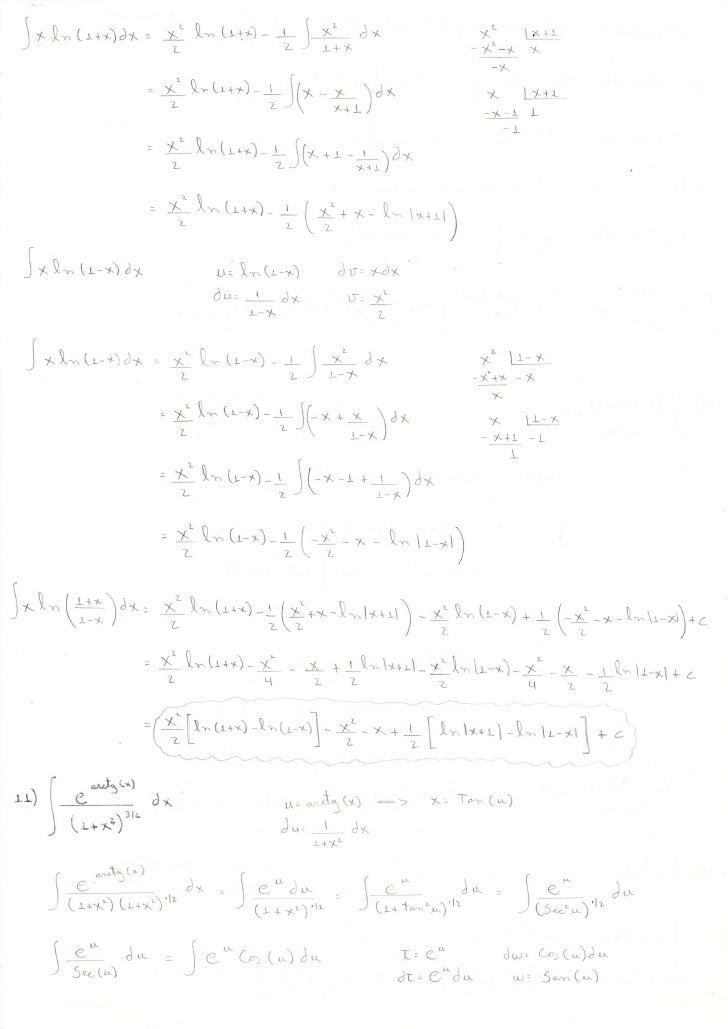 ∫x ln(1+x)dx = x²/2 ln(1+x) - 1/2 ∫ x²/(1+x) dx
x² |x+1
-x²-x  x
-x
= x²/2 ln(1+x) - 1/2 ∫(x - x/(x+1))dx
x |x+1
-x-1  1
-1
= x²/2 ln(1+x) - 1/2 ∫(x+1 - 1/(x+1))dx
= x²/2 ln(1+x) - 1/2 (x²/2 + x - ln|x+1|)
∫x ln(1-x)dx   u= ln(1-x)   dv= xdx
du= 1/(1-x) dx   v= x²/2
∫x ln(1-x)dx = x²/2 ln(1-x) - 1/2 ∫ x²/(1-x) dx
x² |1-x
-x²+x  -x
x
= x²/2 ln(1-x) - 1/2 ∫(-x + x/(1-x))dx
x |1-x
-x+1  -1
1
= x²/2 ln(1-x) - 1/2 ∫(-x-1 + 1/(1-x))dx
= x²/2 ln(1-x) - 1/2 (-x²/2 - x - ln|1-x|)
∫x ln((1+x)/(1-x))dx = x²/2 ln(1+x) - 1/2 (x²/2 + x - ln|x+1|) - x²/2 ln(1-x) + 1/2 (-x²/2 - x - ln|1-x|) + c
= x²/2 ln(1+x) - x²/4 - x/2 + 1/2 ln|x+1| - x²/2 ln(1-x) - x²/4 - x/2 - 1/2 ln|1-x| + c
= x²/2 [ln(1+x) - ln(1-x)] - x²/2 - x + 1/2 [ln|x+1| - ln|1-x|] + c
11) ∫ e^arctg(x)/(1+x²)^3/2 dx   u= arctg(x) —> x= Tan(u)
du= 1/(1+x²) dx
∫ e^arctg(x)/((1+x²)(1+x²)^1/2) dx = ∫ e^u du/(1+x²)^1/2 = ∫ e^u/(1+tan²u)^1/2 du = ∫ e^u/(Sec²u)^1/2 du
∫ e^u/Sec(u) du = ∫ e^u Cos(u)du   t= e^u   dw= Cos(u)du
dt= e^u du   w= Sen(u)